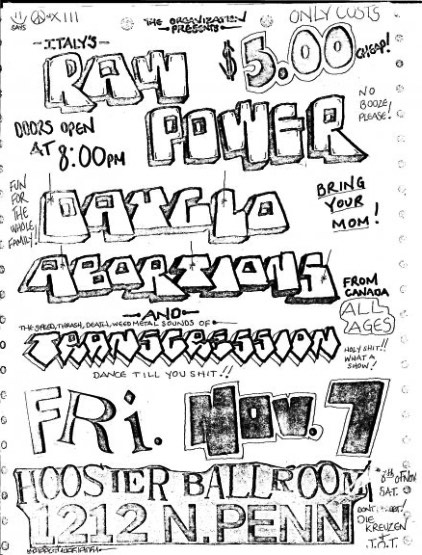 SAYS XIII
THE ORGANIZATION
PRESENTS
ONLY COSTS
$5.00
CHEAP!
-ITALY'S-
RAW
POWER
NO
BOOZE
PLEASE!
DOORS OPEN
AT 8:00PM
FUN
FOR
THE
WHOLE
FAMILY!
DAYGLO
ABORTIONS
BRING
YOUR
MOM!
FROM
CANADA
ALL
AGES
-AND-
THE SPEED, THRASH, DEATH, WEED METAL SOUNDS OF
TRANSGRESSION
HOLY SHIT!!
WHAT A
SHOW!
DANCE TILL YOU SHIT!!
FRI. NOV. 7
HOOSIER BALLROOM
1212 N. PENN
8TH OF NOV.
SAT.
DIE
KREUZEN
&
T.O.T.